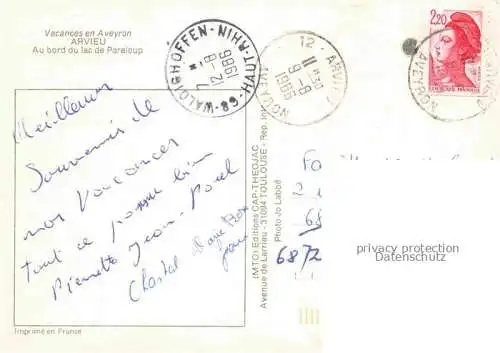 Vacances en Aveyron
ARVIEU
Au bord du lac de Pareloup
68-WALDIGHOFFEN-HAUT-RHIN
12-8
1986
12 - ARVIEU
11H30
9-8
1986
AVEYRON
2,20
AVEYRON
Meilleurs
Souvenirs de
nos Vacances
tout se passe bien
Pierrette Jean-Paul
Chantal
Imprimé en France
(MTO) Editions CAP-THEOJAC
Avenue de Larrieu - 31094 TOULOUSE - Rep. Int.
Photo Jo Labbé
Fa
68
6872
privacy protection
Datenschutz